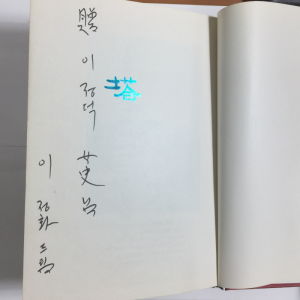 贈
이정덕 女史님
이정화 드림
塔